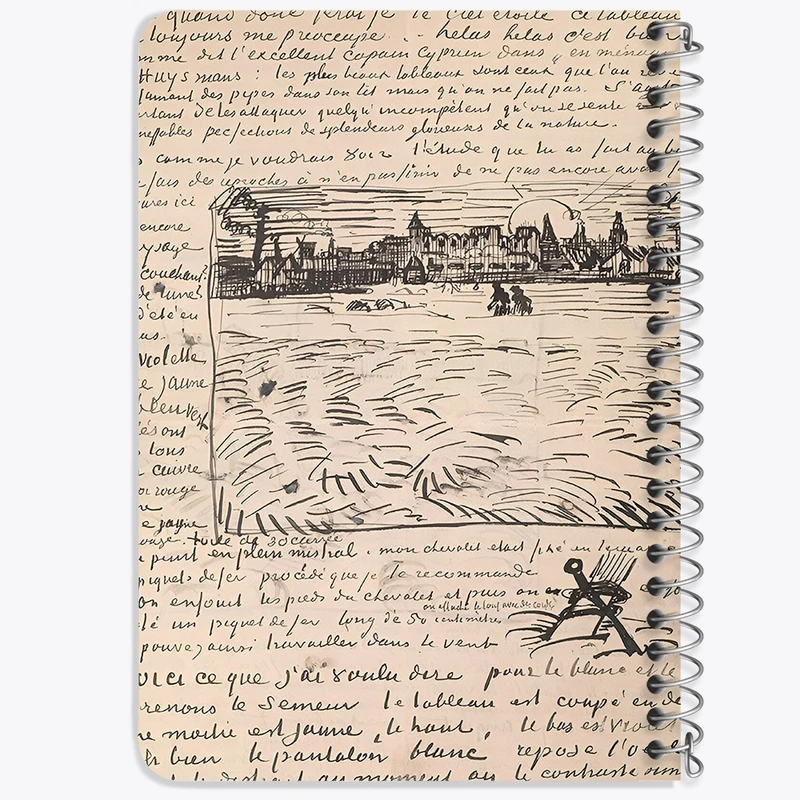 quand donc ferai je le ciel étoilé ce tableau
toujours me preoccupe . . helas helas c'est bien
mme dit l'excellent copain Cyprien dans "en ménage
Huysmans : les plus beaux tableaux sont ceux que l'on reve
fumant des pipes dans son lit mais qu'on ne fait pas. S'agit
urtant de les attaquer quelqu'incompétent qu'on se sente
ineffables perfections de splendeurs glorieuses de la nature.
comme je voudrais voir l'étude que tu as fait au bo
fais des reproches à n'en pas finir de ne pas encore avoir f
ures ici
encore
ysage
couchant.
de lune?
d'été en
as.
violette
e jaune
bleu vert
és ont
tous
cuivre
or rouge
re
e jaune
toile de 30 carrée
e peint en plein mistral. mon chevalet etait fixé en terre
piquets de fer procédé que je te recommande
on enfouit les pieds du chevalet et puis on
on attache le tout avec des cordes
té un piquet de fer long de 50 centimètres
pouvez ainsi travailler dans le vent
voici ce que j'ai voulu dire pour le blanc et le
renons le Semeur le tableau est coupé en de
ne moitié est jaune, le haut, le bas est violet
h bien le pantalon blanc repose l'oe
et le distrait au moment où le contraste sim